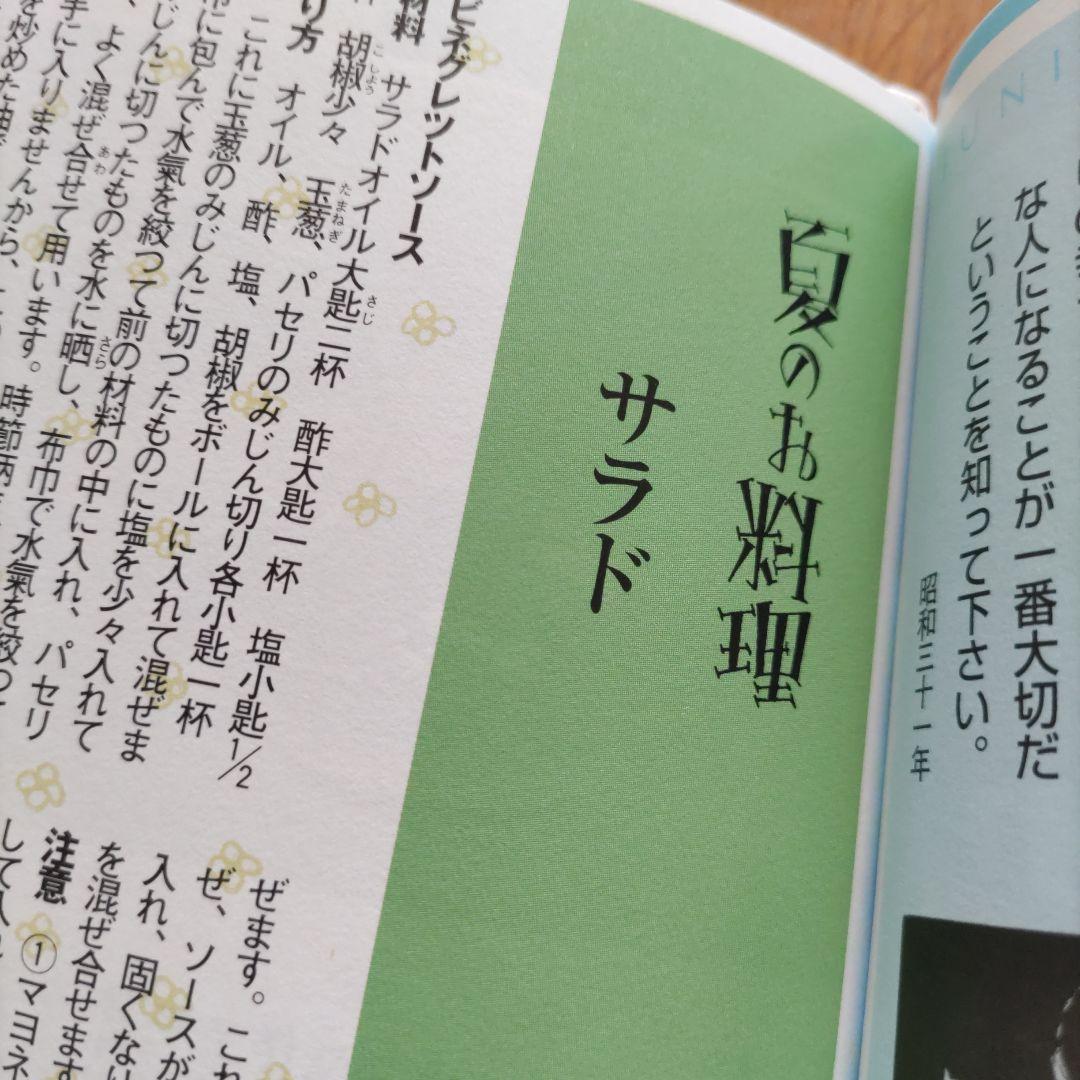 な人になることが一番大切だ
ということを知って下さい。
昭和三十一年
UNI
夏のお料理
サラダ
ビネグレットソース
材料 サラドオイル大匙二杯 酢大匙一杯 塩小匙1/2
胡椒少々 玉葱、パセリのみじん切り各小匙一杯
り方 オイル、酢、塩、胡椒をボールに入れて混ぜま
これに玉葱のみじんに切つたものに塩を少々入れて
布に包んで水氣を絞つて前の材料の中に入れ、パセリ
じんに切つたものを水に晒し、布巾で水氣を絞つて
よく混ぜ合せて用います。時節柄
手に入りませんから、
を炒めた油で
ぜます。これ
ぜ、ソースが
入れ、固くない
を混ぜ合せます
注意 ①マヨネ
して入れ